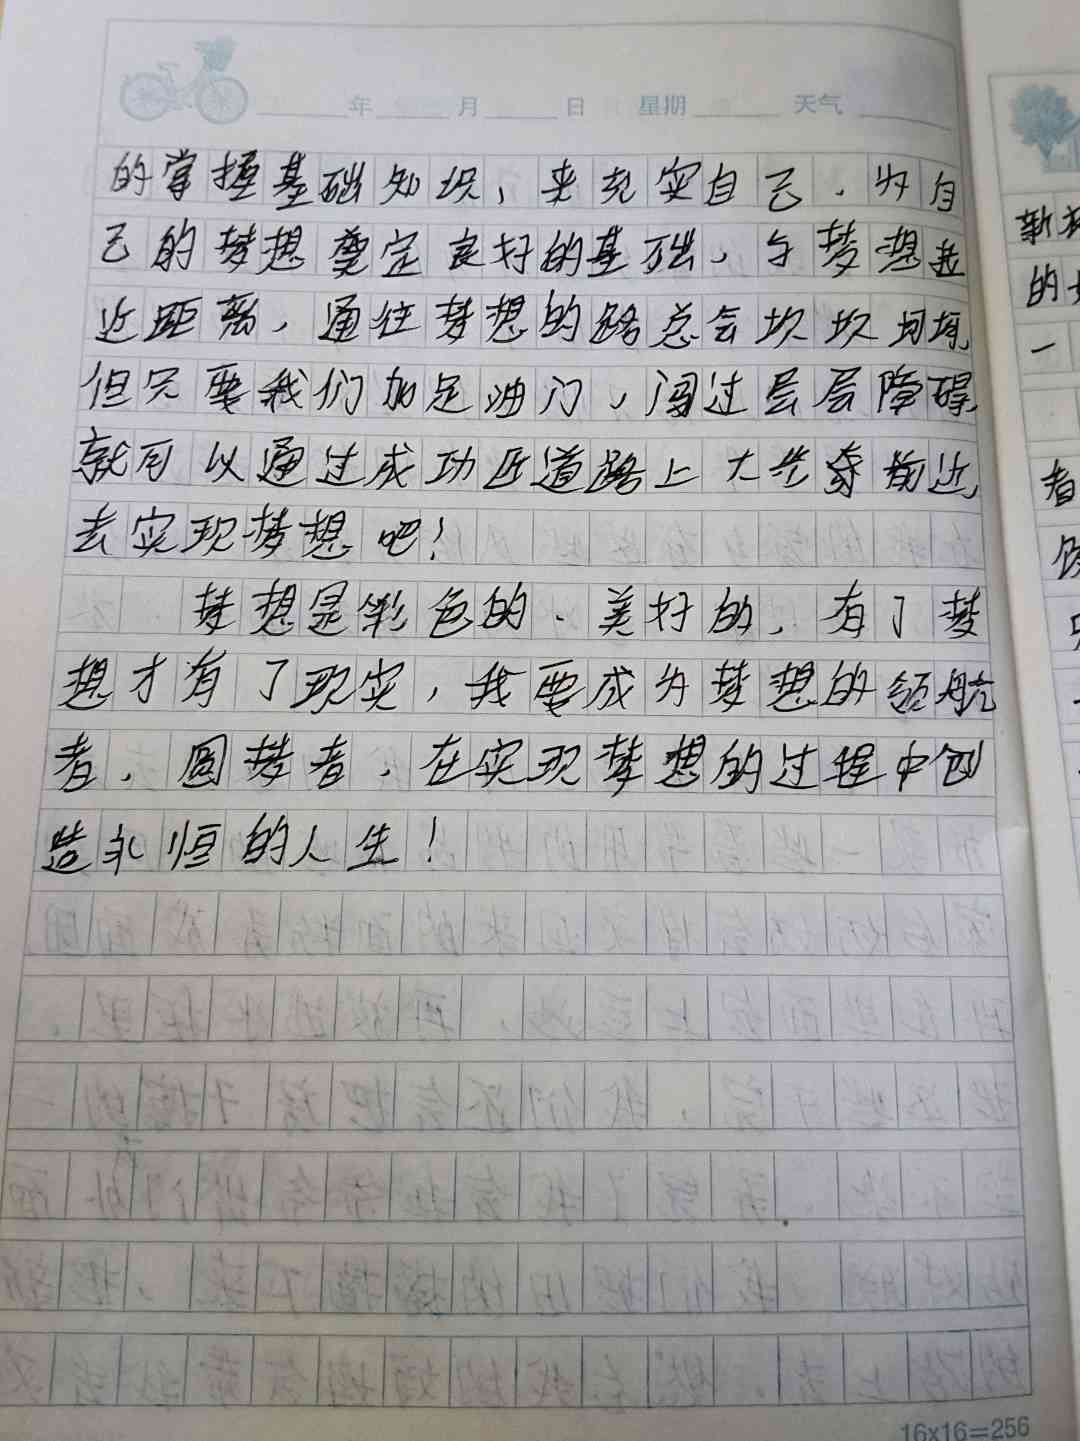 年 月 日 星期 天气
的掌握基础知识，来充实自己．为自
己的梦想奠定良好的基础，与梦想拉
近距离，通往梦想的路总会坎坎坷坷，
但只要我们加足油门，闯过层层障碍，
就可以通过成功匠道路上大步奔前进，
去实现梦想吧！
梦想是彩色的、美好的，有了梦
想才有了现实，我要成为梦想的领航
者，圆梦者，在实现梦想的过程中创
造永恒的人生！
16x16=256
新
的
一
者